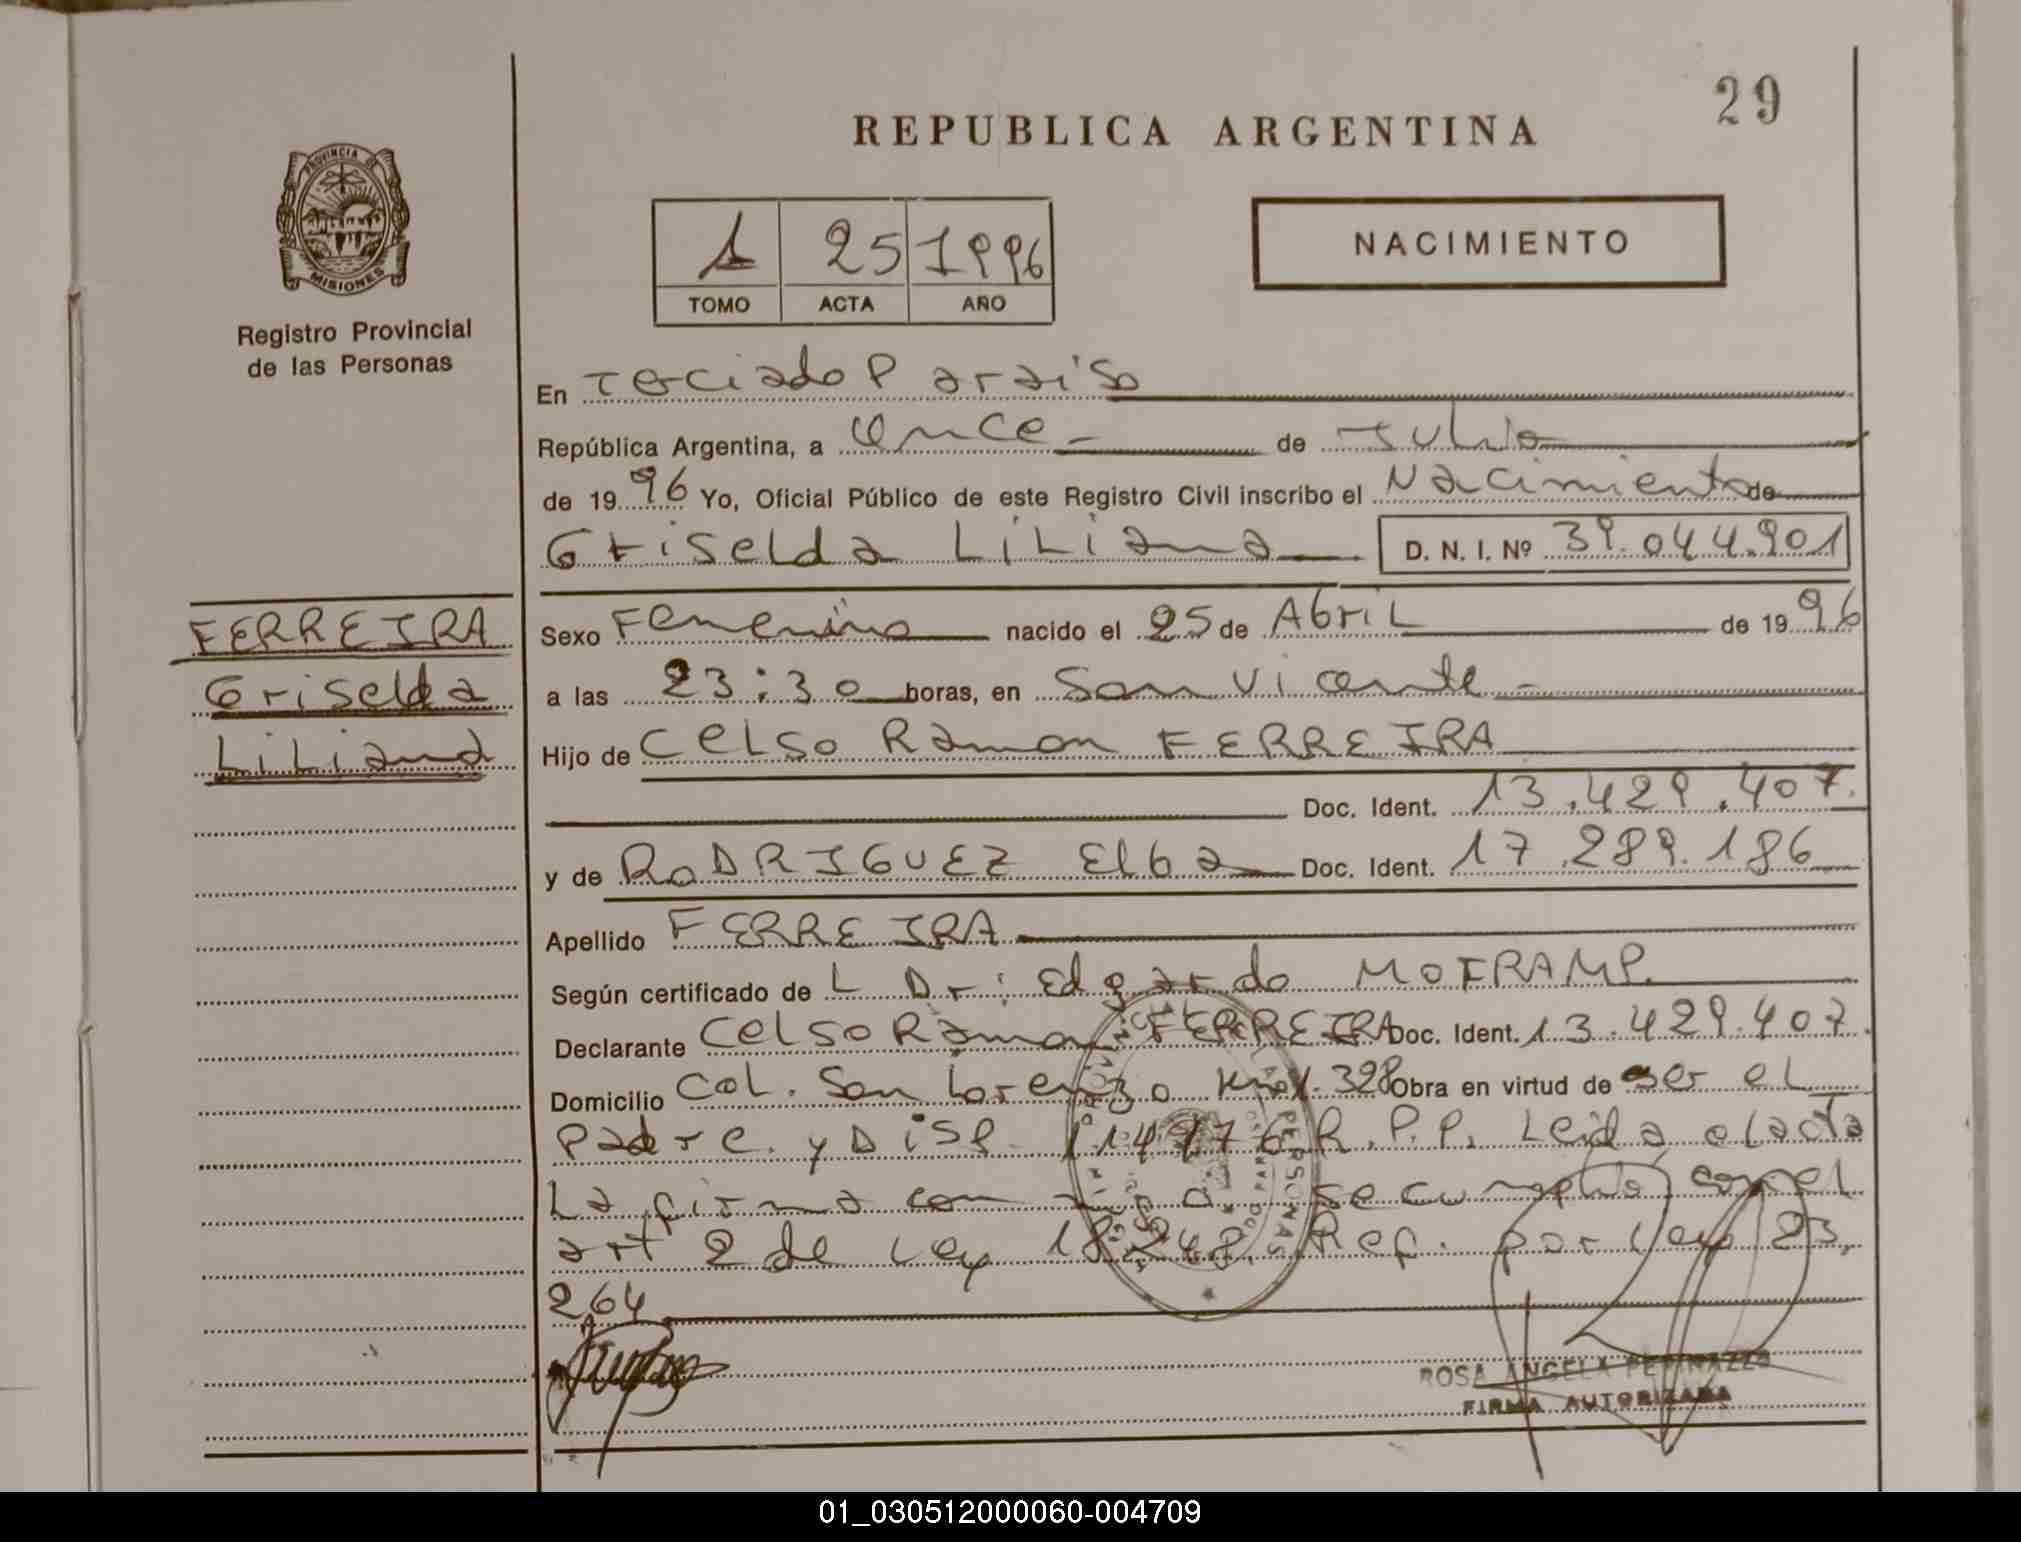 29
REPUBLICA ARGENTINA
PROVINCIA DE
MISIONES
Registro Provincial
de las Personas
1 25 1996
TOMO ACTA AÑO
NACIMIENTO
En Terciado Paraiso
República Argentina, a once de Julio
de 19 96 Yo, Oficial Público de este Registro Civil inscribo el Nacimiento de
Griselda Liliana D. N. I. Nº 39.044.901
FERREIRA
Griselda
Liliana
Sexo Femenino nacido el 25 de Abril de 19 96
a las 23:30 horas, en San Vicente
Hijo de Celso Ramon FERREIRA
Doc. Ident. 13.429.407.
y de RODRIGUEZ Elba Doc. Ident. 17.289.186
Apellido FERREIRA
Según certificado de L Dr: Edgardo
Declarante Celso Ramon FERREIRA Doc. Ident. 13.429.407.
Domicilio Col. San Lorenzo 328 Obra en virtud de ser el
Padre. y Disp. R.P.P. Leida el acta
La firma se cumplió con el
art 2 de Ley 18.248. Ref. por Ley 23.
264
ROSA ANGELA
FIRMA AUTORIZADA
01_030512000060-004709